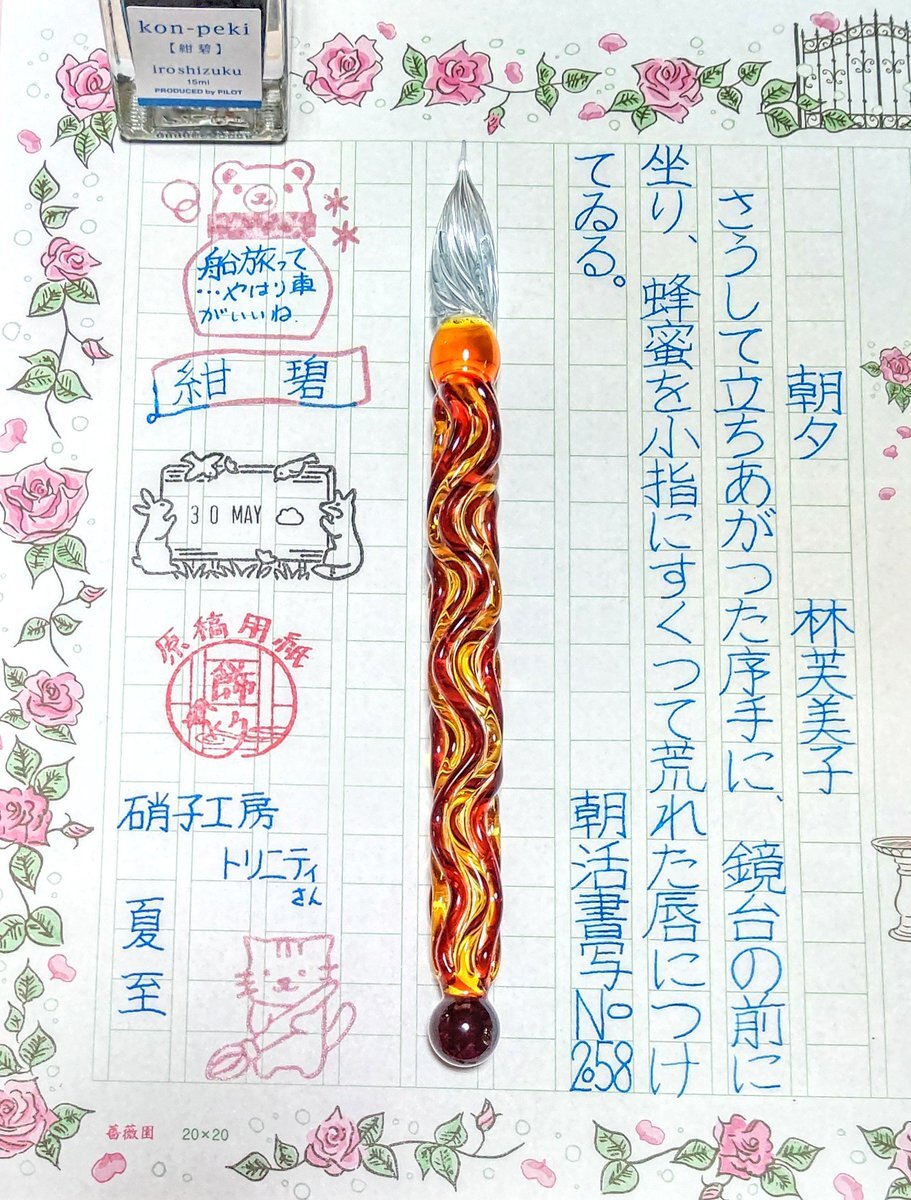 kon-peki
【紺碧】
iroshizuku
15ml
PRODUCED by PILOT
朝夕　林芙美子
さうして立ちあがつた序手に、鏡台の前に
坐り、蜂蜜を小指にすくつて荒れた唇につけ
てゐる。
朝活書写No258
船旅って
…やはり車
がいいね.
紺碧
30 MAY
原稿用紙
飾り
硝子工房
トリニティ
さん
夏至
薔薇園 20×20